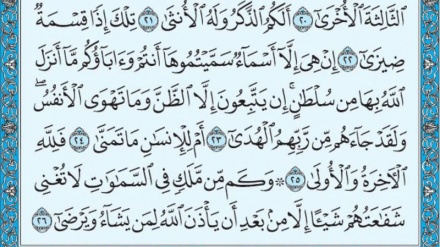 الثَّالِثَةَ الْأُخْرَىٰ ۝٢٠ أَلَكُمُ الذَّكَرُ وَلَهُ الْأُنثَىٰ ۝٢١ تِلْكَ إِذًا قِسْمَةٌ
ضِيزَىٰ ۝٢٢ إِنْ هِيَ إِلَّا أَسْمَاءٌ سَمَّيْتُمُوهَا أَنتُمْ وَءَابَاؤُكُم مَّا أَنزَلَ
اللَّهُ بِهَا مِن سُلْطَٰنٍ ۚ إِن يَتَّبِعُونَ إِلَّا الظَّنَّ وَمَا تَهْوَى الْأَنفُسُ ۖ
وَلَقَدْ جَاءَهُم مِّن رَّبِّهِمُ الْهُدَىٰ ۝٢٣ أَمْ لِلْإِنسَٰنِ مَا تَمَنَّىٰ ۝٢٤ فَلِلَّهِ
الْآخِرَةُ وَالْأُولَىٰ ۝٢٥ ۞ وَكَم مِّن مَّلَكٍ فِي السَّمَٰوَٰتِ لَا تُغْنِي
شَفَٰعَتُهُمْ شَيْئًا إِلَّا مِن بَعْدِ أَن يَأْذَنَ اللَّهُ لِمَن يَشَاءُ وَيَرْضَىٰ ۝٢٦